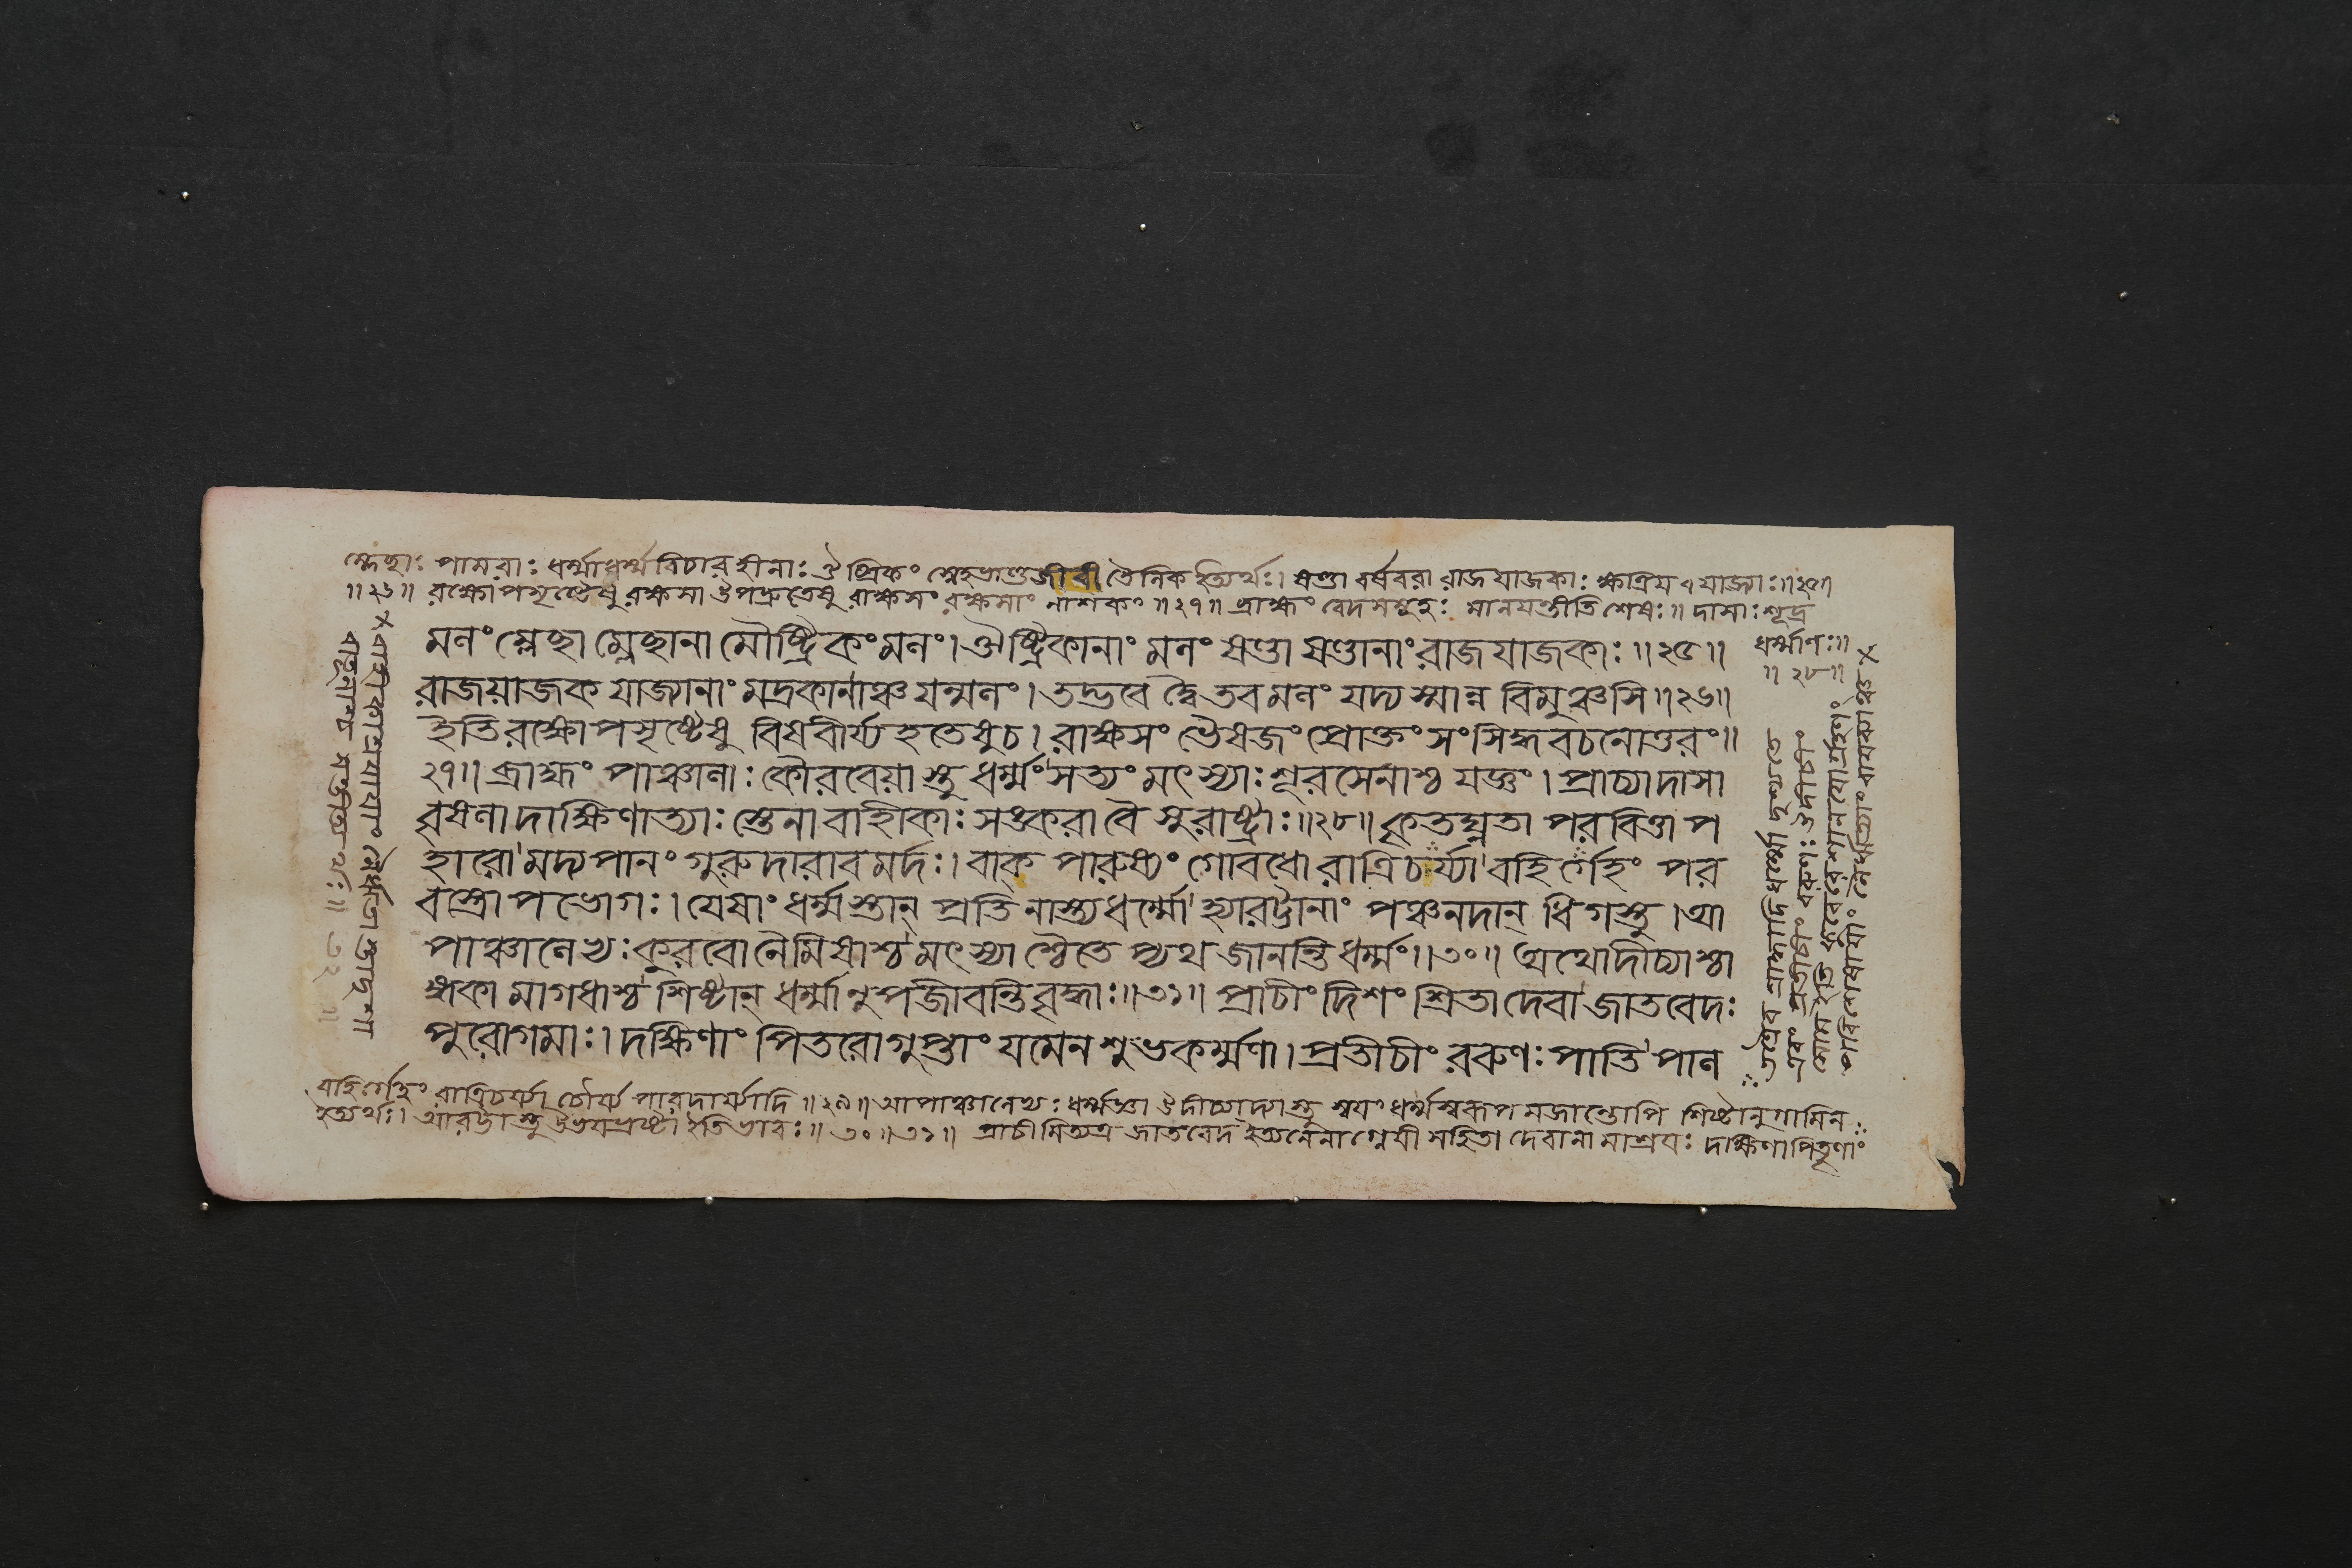 ম্লেচ্ছাঃ পামরাঃ ধর্ম্মাধর্ম্মবিচারহীনাঃ ঔষ্ট্রিকঃ স্নেহভাণ্ডজীবী তৈলিক ইত্যর্থঃ। ষণ্ডা বর্ষবরা রাজযাজকাঃ ক্ষত্রিয যাজ্যাঃ॥২৫॥
॥২৬॥ রক্ষোপসৃষ্টেষু রক্ষসা উপদ্রুতেষু রাক্ষসং রক্ষসাং নাশকং ॥২৭॥ ব্রাহ্মং বেদসমূহঃ মানযন্তীতি শেষঃ॥ দাসাঃ শূদ্র
ধর্ম্মাণঃ॥
॥২৮॥
মলং ম্লেচ্ছা ম্লেচ্ছানা মৌষ্ট্রিকং মলং। ঔষ্ট্রিকানাং মলং ষণ্ডা ষণ্ডানাং রাজযাজকাঃ॥২৫॥
রাজয়াজক যাজ্যানাং মদ্রকানাঞ্চ যন্মলং। তদ্ভবে দ্বৈ তব মলং যদ্যস্মান্ন বিমুঞ্চসি॥২৬॥
ইতি রক্ষোপসৃষ্টেষু বিষবীর্য্য হতেষু চ। রাক্ষসং ভৈষজং প্রোক্তং সংসিদ্ধ বচনোত্তরং॥
২৭॥ ব্রাহ্মং পাঞ্চালাঃ কৌরবেয়াস্তু ধর্ম্মং সত্যং মৎস্যাঃ শূরসেনাশ্চ যজ্ঞং। প্রাচ্যা দাসা
বৃষলা দাক্ষিণাত্যাঃ স্তেনা বাহিকাঃ সঙ্করা বৈ সুরাষ্ট্রাঃ॥২৮॥ কৃতঘ্নতা পরবিত্তাপ
হারো মদ্যপানং গুরুদারাবমর্দঃ। বাক্পারুষ্যং গোবধো রাত্রিচর্য্যা বহির্গেহং পর
বস্ত্রোপভোগঃ। যেষাং ধর্ম্মস্তান্ প্রতি নাস্ত্যধর্ম্মো হ্যারট্টানাং পঞ্চনদান্ ধিগস্তু। আ
পাঞ্চালেভ্যঃ কুরবো নৈমিষাশ্চ মৎস্যাশ্চৈতে প্যথ জানন্তি ধর্ম্মং॥৩০॥ অথোদীচ্যাশ্চা
ঙ্গকা মাগধাশ্চ শিষ্টান্ ধর্ম্মানুপজীবন্তি বৃদ্ধাঃ॥৩১॥ প্রাচীং দিশং শ্রিতা দেবা জাতবেদঃ
পুরোগমাঃ। দক্ষিণাং পিতরো গুপ্তাং যমেন শুভকর্ম্মণা। প্রতীচীং বরুণঃ পাতি পাল
বহির্গেহং রাত্রিচর্য্যা চৌর্য্য পারদার্য্যাদি॥২৯॥ আপাঞ্চালেভ্যঃ ধর্ম্মজ্ঞা উদীচ্যাদ্যাস্তু স্বয়ং ধর্ম্মস্বরূপমজানন্তোপি শিষ্টানুগামিন
ইত্যর্থঃ। আরট্টাস্তু উভযভ্রষ্টা ইতি ভাবঃ॥৩০॥৩১॥ প্রাচীমিত্যত্র জাতবেদ ইত্যনেনাগ্নেযী সহিতা দেবানামাশ্রযঃ দক্ষিণা পিতৃণাং